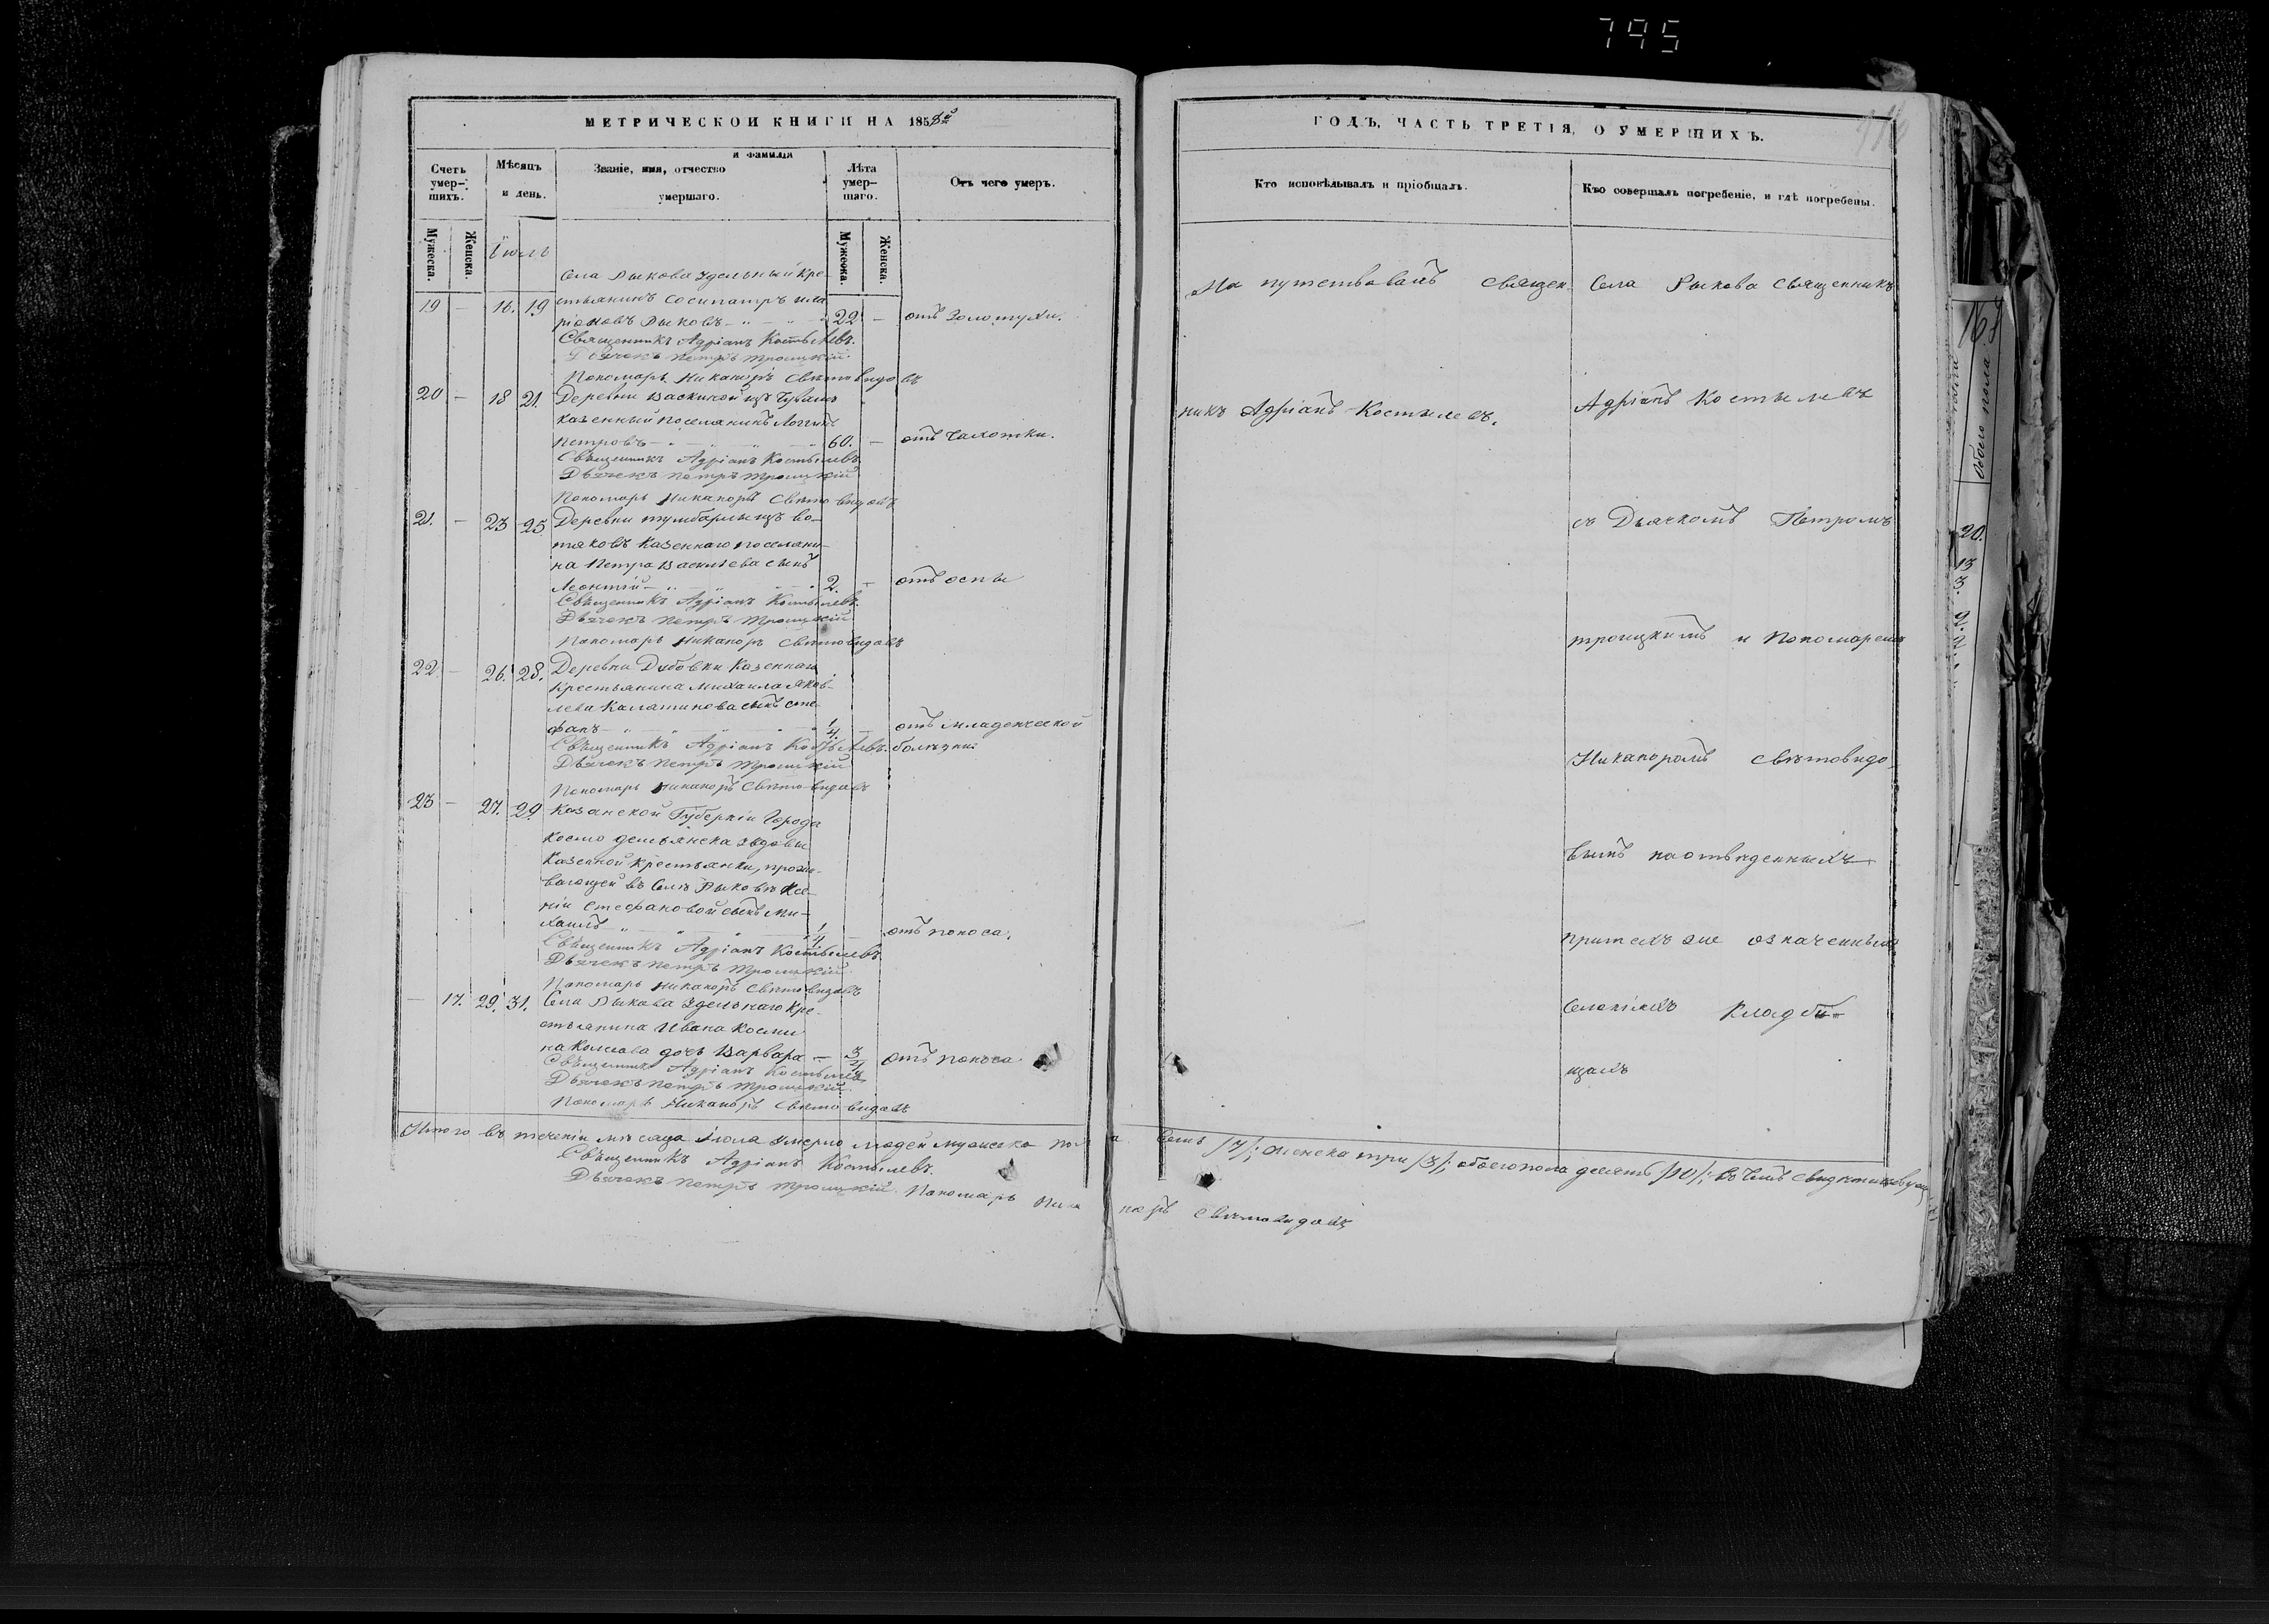 795
МЕТРИЧЕСКОЙ КНИГИ НА 1858й
Счетъ умер-шихъ.
Мѣсяцъ и день.
Званіе, имя, отчество и фамилія умершаго.
Лѣта умер-шаго.
Отъ чего умеръ.
Мужеска.
Женска.
Мужеска.
Женска.
Іюль
Села Рыкова Удельный кре-
19 — 16. 19 стьянинъ Сосипатръ Ила
ріоновъ Рыковъ 22 — отъ Золотухи.
Священникъ Адріанъ Костылевъ.
Дьячекъ Петръ Троицкій.
Пономарь Никаноръ Свѣтовидовъ
20 — 18 21. Деревни Васкиной изъ
казенный поселянинъ
Петровъ 60. — отъ Чахотки.
Священникъ Адріанъ Костылевъ
Дьячекъ Петръ Троицкій
Пономарь Никаноръ Свѣтовидовъ
21. — 23 25 Деревни тумбарлы изъ во-
тяковъ Казеннаго поселяни-
на Петра Васильева сынъ
Леонтій 2. — отъ оспы
Священникъ Адріанъ Костылевъ.
Дьячекъ Петръ Троицкій
Пономарь Никаноръ Свѣтовидовъ
22. — 26. 28. Деревни Дубовки Казеннаго
Крестьянина Михаила Яков-
лева Калашникова сынъ Сте-
фанъ 1/4. — отъ младенческой
Священникъ Адріанъ Костылевъ. болѣзни
Дьячекъ Петръ Троицкій
Пономарь Никаноръ Свѣтовидовъ
23 — 27. 29 Казанской Губерніи Города
Космо демьянска вдовы
Казенной Крестьянки, прожи-
вающей въ Селѣ Рыковѣ Ксе-
ніи Стефановой сынъ Ми-
хаилъ 1/4 — отъ поноса.
Священникъ Адріанъ Костылевъ
Дьячекъ Петръ Троицкій
Пономарь Никаноръ Свѣтовидовъ
— 17. 29. 31. Села Рыкова Удельнаго Кре-
стьянина Ивана Косми
на дочь Варвара — 3/4 отъ поноса
Священникъ Адріанъ Костылевъ
Дьячекъ Петръ Троицкій
Пономарь Никаноръ Свѣтовидовъ
Итого въ теченіи мѣсяца Іюля умерло людей мужеска пола семь /7/; женска три /3/; обоего пола десять /10/; въ чемъ
Священникъ Адріанъ Костылевъ.
Дьячекъ Петръ Троицкій. Пономарь Никаноръ Свѣтовидовъ
ГОДЪ, ЧАСТЬ ТРЕТІЯ, О УМЕРШИХЪ.
Кто исповѣдывалъ и пріобщалъ.
Кто совершалъ погребеніе, и гдѣ погребены.
На путствовалъ священ-
никъ Адріанъ Костылевъ.
Села Рыкова Священникъ
Адріанъ Костылевъ
съ Дьячкомъ Петромъ
троицкимъ и Пономаремъ
Никаноромъ Свѣтовидо-
вымъ на отвѣденныхъ
при тѣхъ же означенныхъ
Селеніяхъ Кладби-
щахъ
обоего пола
20.
13
3.
2.
2.